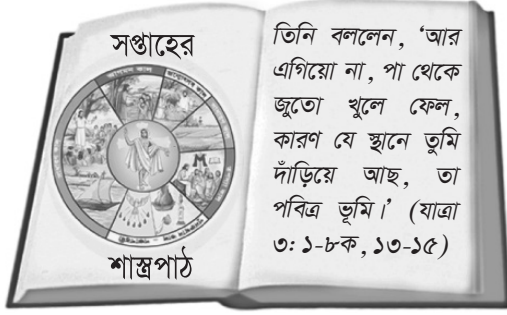 সপ্তাহের
শাস্ত্রপাঠ
তিনি বললেন, ‘আর
এগিয়ো না, পা থেকে
জুতো খুলে ফেল,
কারণ যে স্থানে তুমি
দাঁড়িয়ে আছ, তা
পবিত্র ভূমি।’ (যাত্রা
৩: ১-৮ক, ১৩-১৫)